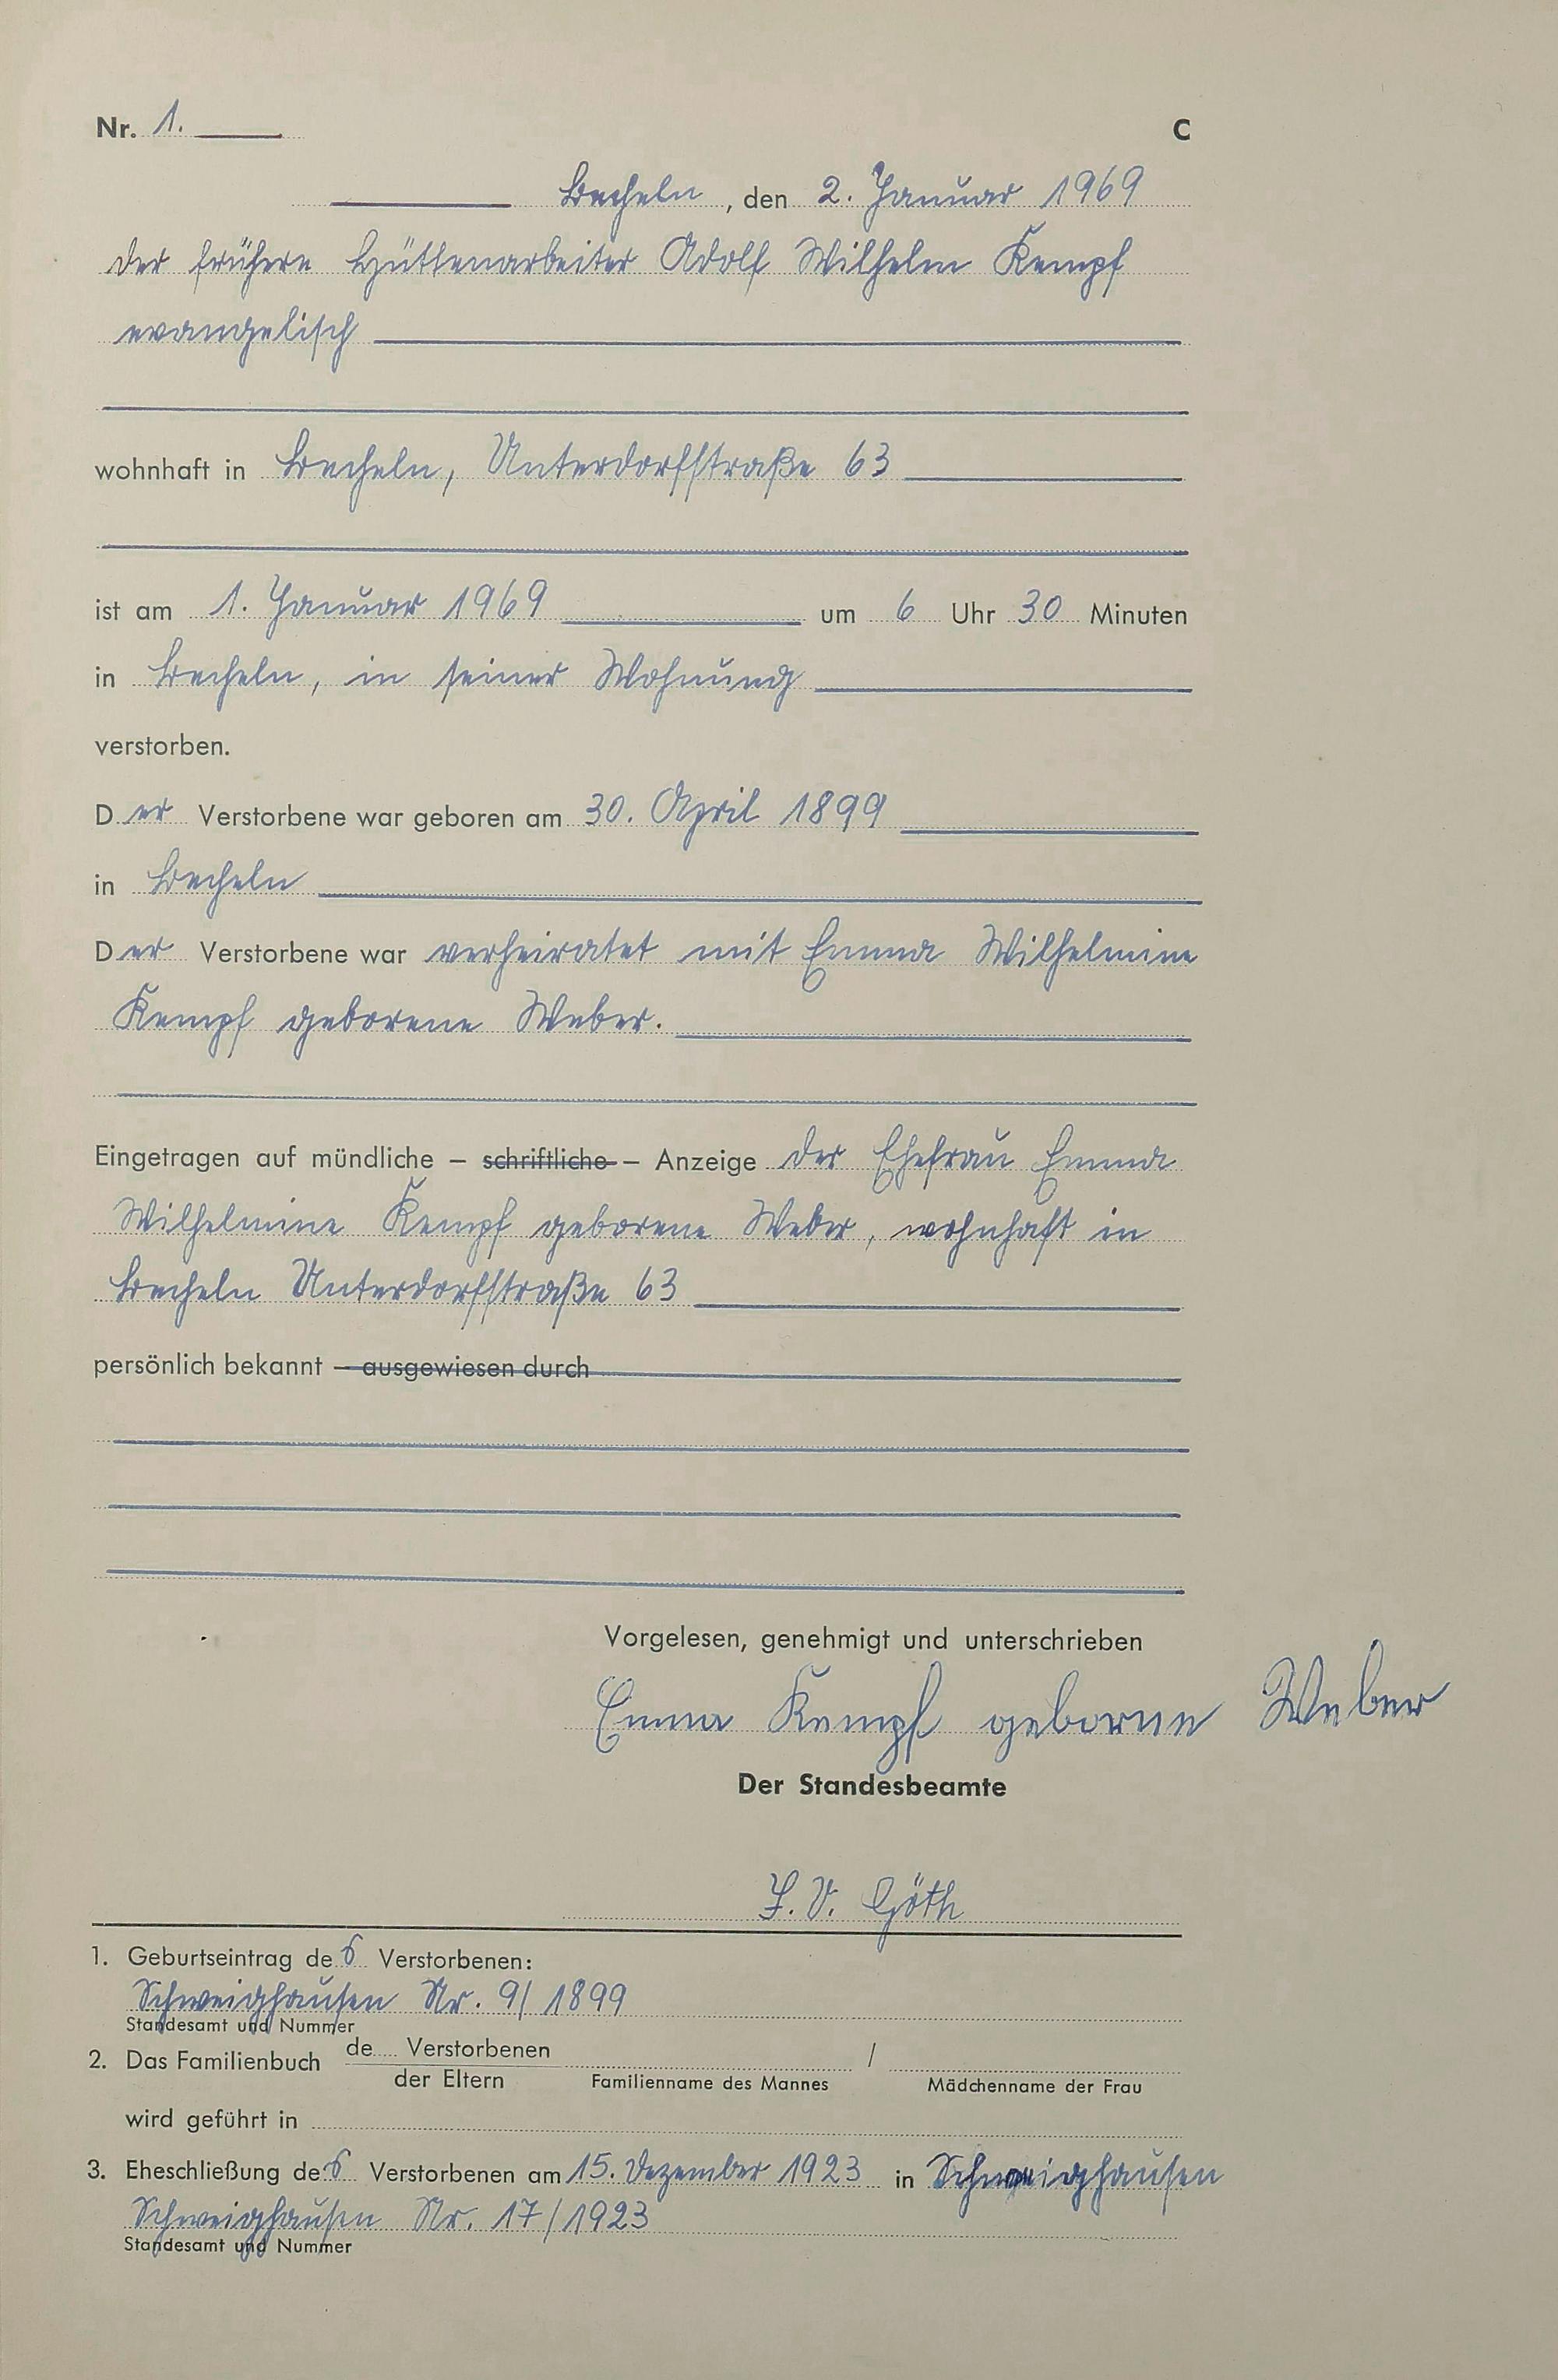 Nr. 1. C
Becheln, den 2. Januar 1969
Der frühere Hüttenarbeiter Adolf Wilhelm Kempf
evangelisch
wohnhaft in Becheln, Unterdorfstraße 63
ist am 1. Januar 1969 um 6 Uhr 30 Minuten
in Becheln, in seiner Wohnung
verstorben.
Der Verstorbene war geboren am 30. April 1899
in Becheln
Der Verstorbene war verheiratet mit Emma Wilhelmine
Kempf geborene Weber.
Eingetragen auf mündliche – schriftliche – Anzeige der Ehefrau Emma
Wilhelmine Kempf geborene Weber, wohnhaft in
Becheln Unterdorfstraße 63
persönlich bekannt – ausgewiesen durch
Vorgelesen, genehmigt und unterschrieben
Emma Kempf geborne Weber
Der Standesbeamte
I.V. Göth
1. Geburtseintrag des Verstorbenen:
Schweighausen Nr. 9/1899
Standesamt und Nummer
2. Das Familienbuch de Verstorbenen /
der Eltern Familienname des Mannes Mädchenname der Frau
wird geführt in
3. Eheschließung des Verstorbenen am 15. Dezember 1923 in Schweighausen
Schweighausen Nr. 17/1923
Standesamt und Nummer